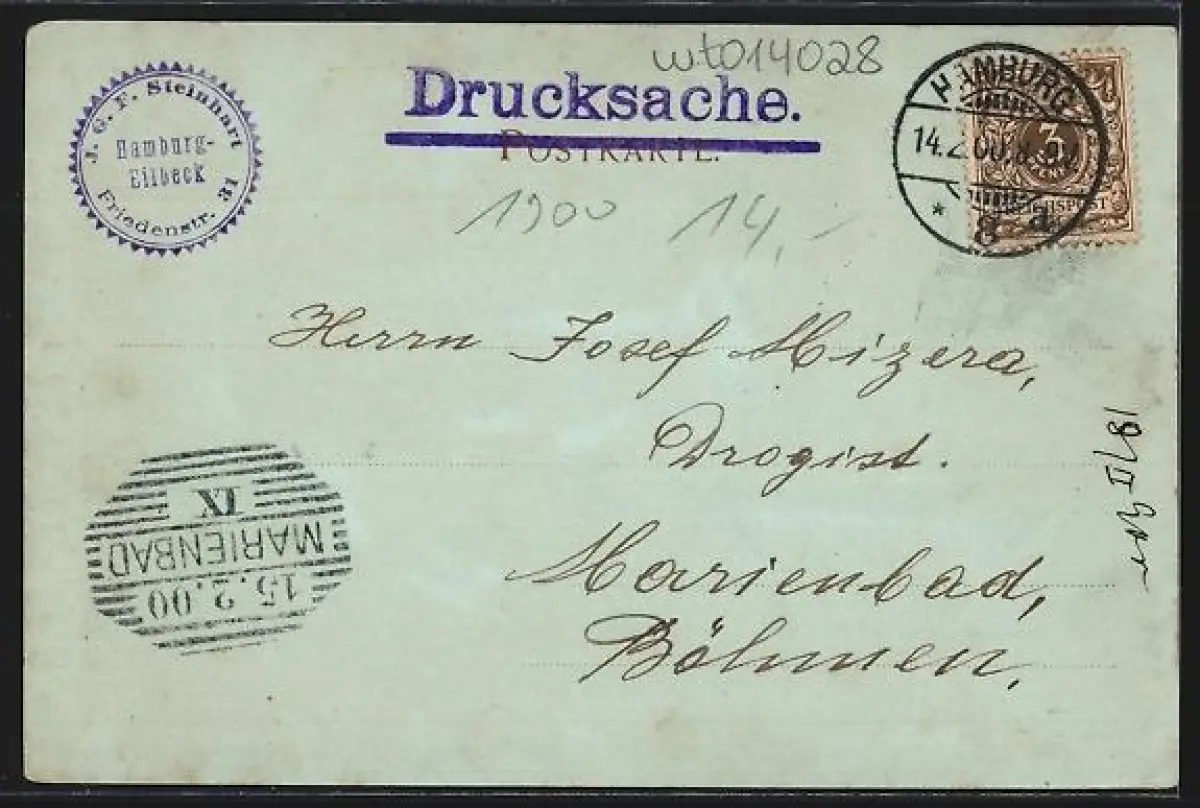 wt014028
Drucksache.
POSTKARTE.
J. G. F. Steinhart
Hamburg-
Eilbeck
Friedenstr. 31
HAMBURG
14.2.00.
* 8 a
3
1900 14,-
Herrn Josef Mizera,
Drogist.
Marienbad,
Böhmen,
18/II
15.2.00
MARIENBAD
IX